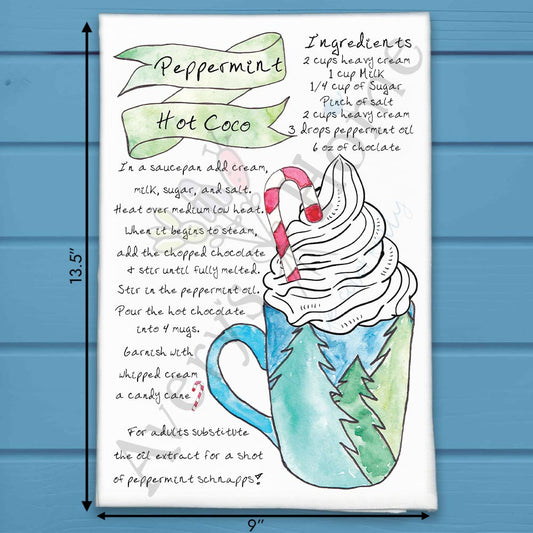 Peppermint
Hot Coco
Ingredients
2 cups heavy cream
1 cup Milk
1/4 cup of Sugar
Pinch of salt
2 cups heavy cream
3 drops peppermint oil
6 oz of choclate
In a saucepan add cream,
milk, sugar, and salt.
Heat over medium low heat.
When it begins to steam,
add the chopped chocolate
& stir until fully melted.
Stir in the peppermint oil.
Pour the hot chocolate
into 4 mugs.
Garnish with
whipped cream
a candy cane
For adults substitute
the oil extract for a shot
of peppermint schnapps!
13.5"
9"